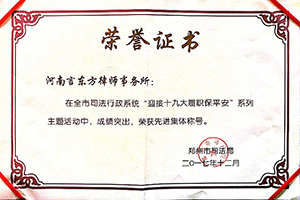 荣誉证书
河南言东方律师事务所：
在全市司法行政系统“迎接十九大履职保平安”系列
主题活动中，成绩突出，荣获先进集体称号。
郑州市司法局
二〇一七年十二月